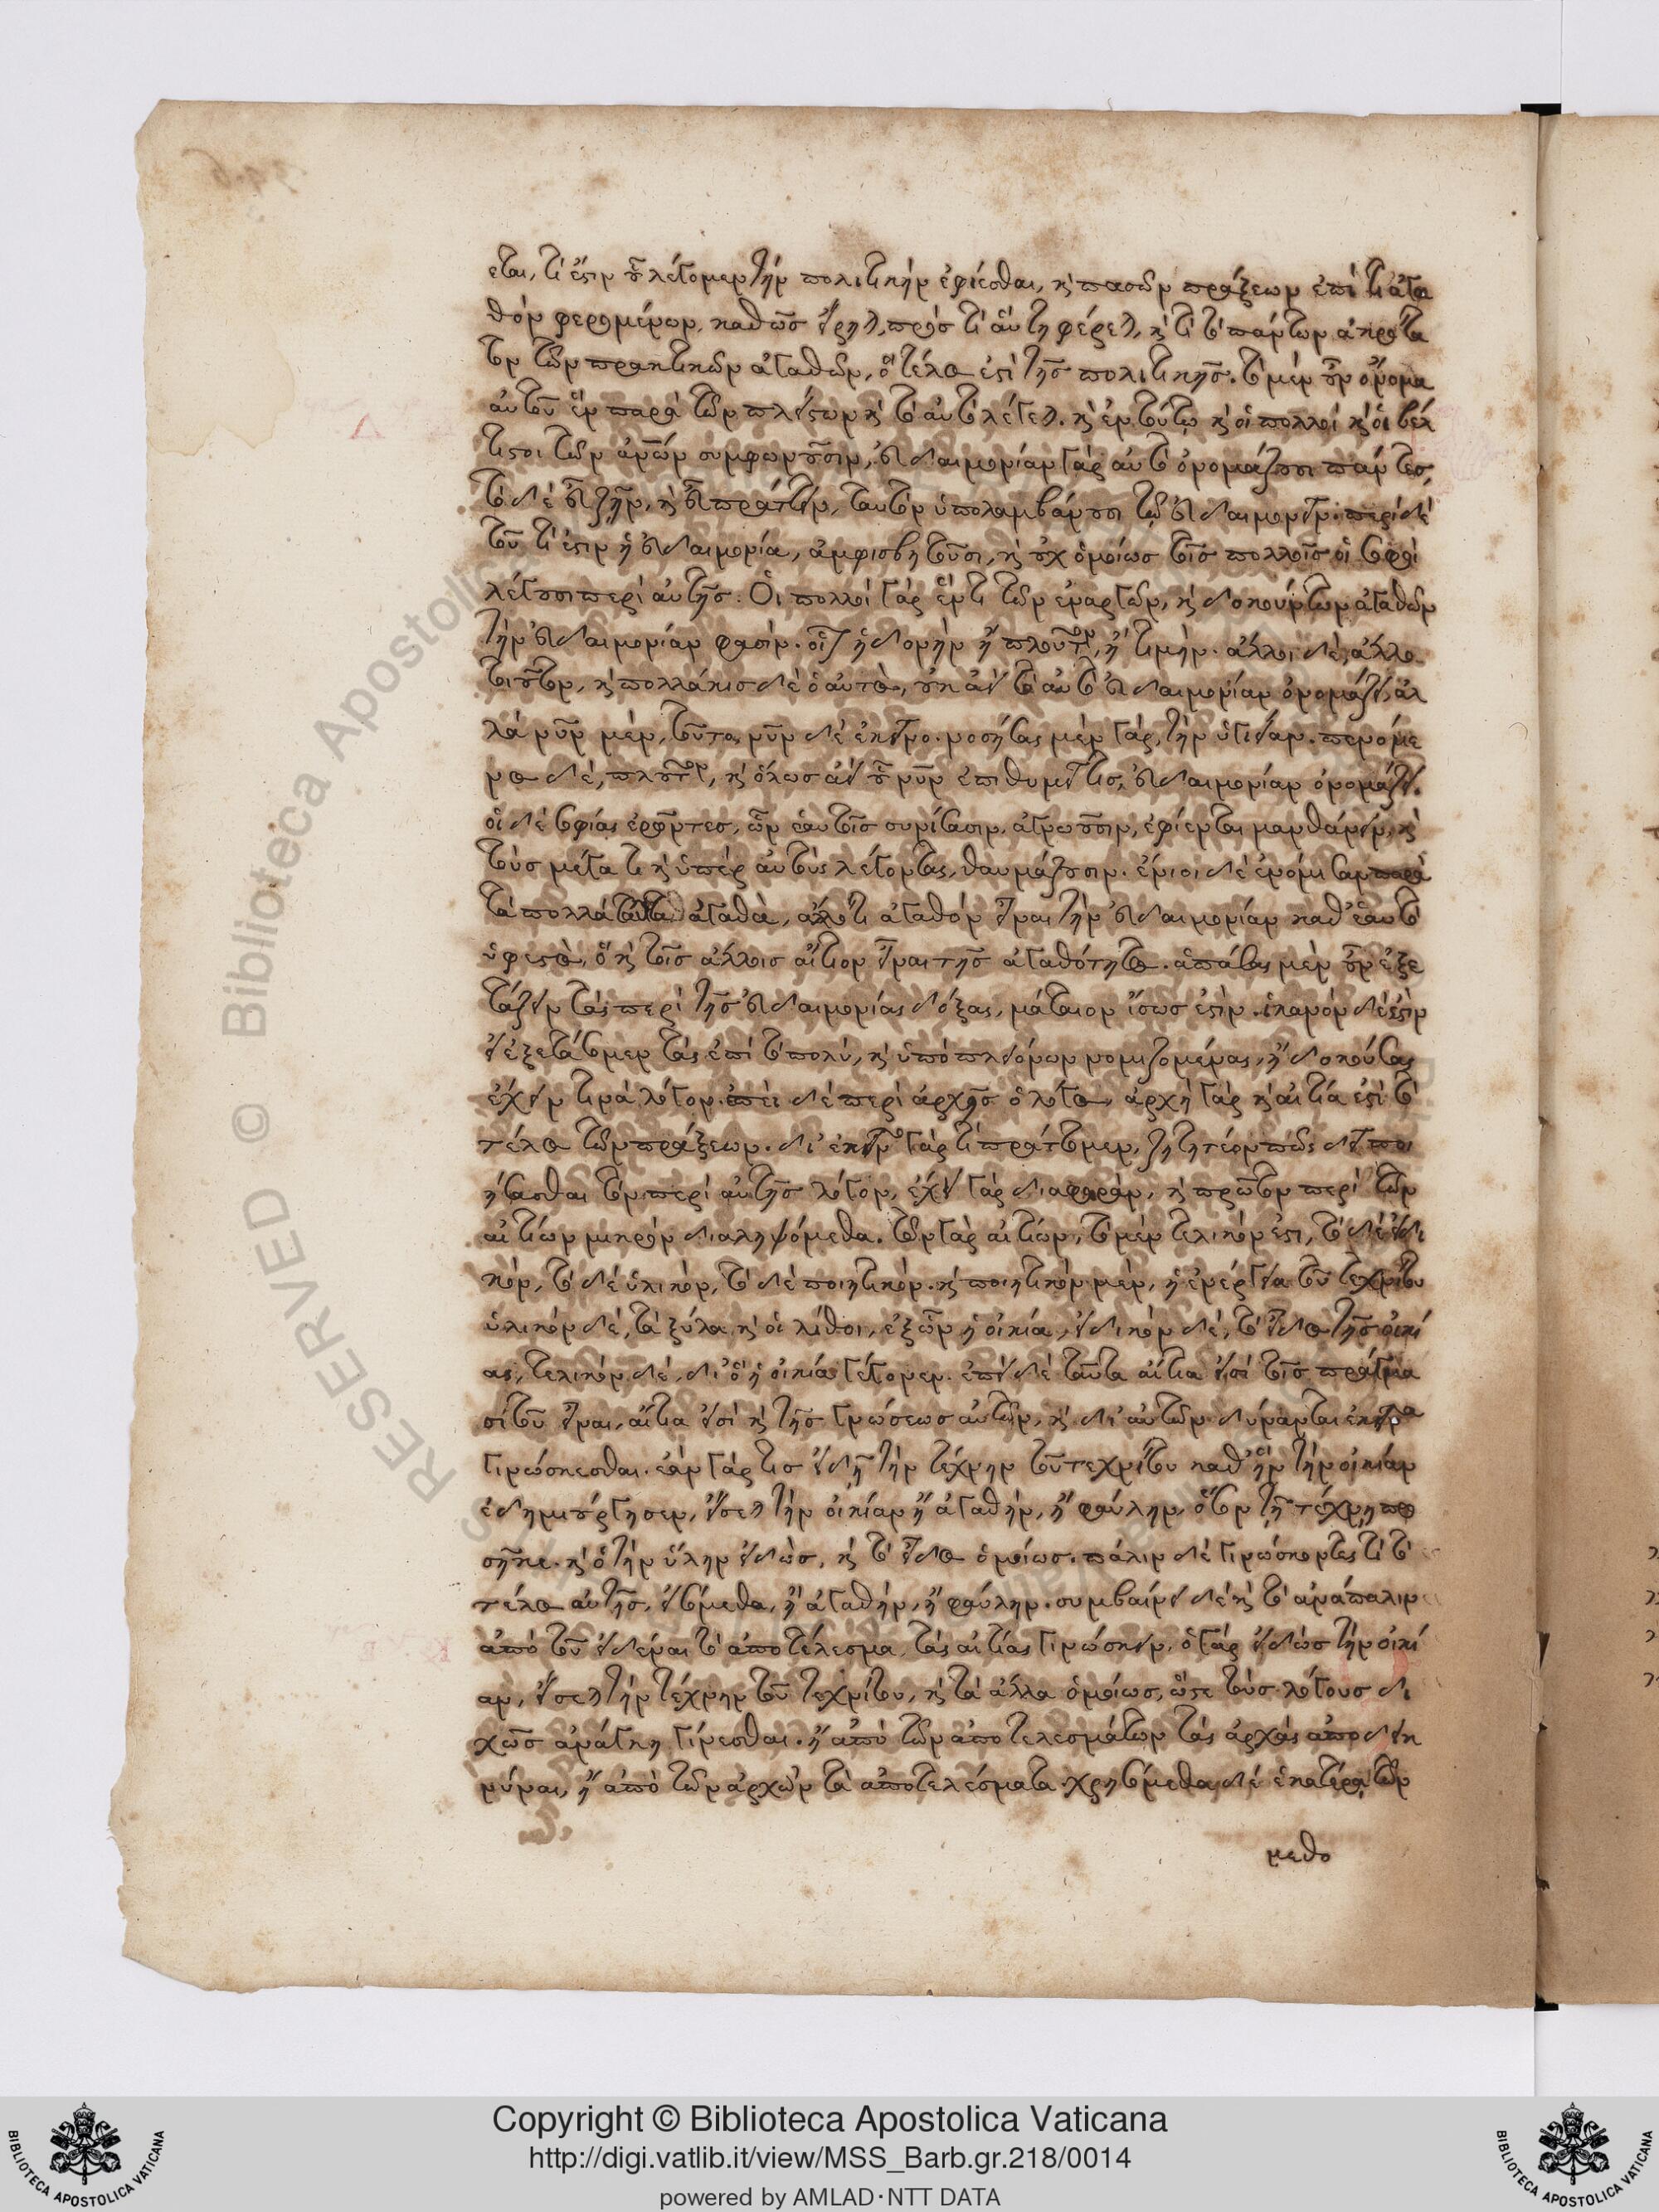 εται, τί ἐστιν οὗ λέγομεν τὴν πολιτικὴν ἐφίεσθαι, καὶ πασῶν πράξεων ἐπί τι ἀγα
θὸν φερομένων, καθὼς εἴρηται, πρὸς τί αὕτη φέρεται, καὶ τί τὸ πάντων ἀκρότα
τον τῶν πρακτικῶν ἀγαθῶν, ὃ τέλος ἐστὶ τῆς πολιτικῆς. τὸ μὲν οὖν ὄνομα
αὐτοῦ ἓν παρὰ τῶν πλείστων καὶ τὸ αὐτὸ λέγεται. καὶ ἐν τούτῳ καὶ οἱ πολλοὶ καὶ οἱ βέλ
τιστοι τῶν ἀνθρώπων συμφωνοῦσιν, εὐδαιμονίαν γὰρ αὐτὸ ὀνομάζουσι πάντες,
τὸ δὲ εὖ ζῆν, καὶ εὖ πράττειν, ταυτὸν ὑπολαμβάνουσι τῷ εὐδαιμονεῖν. περὶ δὲ
τοῦ τί ἐστιν ἡ εὐδαιμονία, ἀμφισβητοῦσι, καὶ οὐχ ὁμοίως τοῖς πολλοῖς οἱ σοφοὶ
λέγουσι περὶ αὐτῆς. Οἱ πολλοὶ γὰρ ἕν τι τῶν ἐναργῶν, καὶ δοκούντων ἀγαθῶν
τὴν εὐδαιμονίαν φασίν. οἷον ἡδονὴν ἢ πλοῦτον, ἢ τιμήν. ἄλλοι δὲ, ἄλλο
τοιοῦτον, καὶ πολλάκις δὲ ὁ αὐτὸς, οὐκ ἀεὶ τὸ αὐτὸ εὐδαιμονίαν ὀνομάζει, ἀλ
λὰ νῦν μὲν, τοῦτο, νῦν δὲ ἐκεῖνο. νοσήσας μὲν γὰρ, τὴν ὑγίειαν. πενόμε
νος δὲ, πλοῦτον, καὶ ὅλως ἀεὶ οὗ νῦν ἐπιθυμεῖ τις, εὐδαιμονίαν ὀνομάζει.
οἱ δὲ σοφίας ἐρῶντες, ὧν ἑαυτοῖς συνίσασιν ἀγνοοῦσιν, ἐφίενται μανθάνειν, καὶ
τοὺς μέγα τι καὶ ὑπὲρ αὐτοὺς λέγοντας, θαυμάζουσιν. ἔνιοι δὲ ἐνόμισαν παρὰ
τὰ πολλὰ ταῦτα ἀγαθὰ, ἄλλό τι ἀγαθὸν εἶναι τὴν εὐδαιμονίαν καθ' ἑαυτὸ
ὑφεστὸς, ὃ καὶ τοῖς ἄλλοις αἴτιον εἶναι τῆς ἀγαθότητος. ἁπάσας μὲν οὖν ἐξε
τάζειν τὰς περὶ τῆς εὐδαιμονίας δόξας, μάταιον ἴσως ἐστίν. ἱκανὸν δέ ἐστιν
εἰ ἐξετάσομεν τὰς ἐπὶ τὸ πολὺ, καὶ ὑπὸ πλειόνων νομιζομένας, ἢ δοκούσας
ἔχειν τινὰ λόγον. ἐπεὶ δὲ περὶ ἀρχῆς ὁ λόγος, ἀρχὴ γὰρ καὶ αἰτία ἐστὶ τὸ
τέλος τῶν πράξεων. δι' ἐκεῖνο γάρ τι πράττομεν, ζητητέον πῶς δεῖ ποι
ήσασθαι τὸν περὶ αὐτῆς λόγον, ἔχει γὰρ διαφορὰν, καὶ πρῶτον περὶ τῶν
αἰτίων μικρὸν διαληψόμεθα. τῶν γὰρ αἰτίων, τὸ μὲν τελικόν ἐστι, τὸ δὲ εἰδι
κὸν, τὸ δὲ ὑλικὸν, τὸ δὲ ποιητικόν. καὶ ποιητικὸν μὲν, ἡ ἐνέργεια τοῦ τεχνίτου
ὑλικὸν δὲ, τὰ ξύλα καὶ οἱ λίθοι, ἐξ ὧν ἡ οἰκία, εἰδικὸν δὲ, τὸ εἶδος τῆς οἰκί
ας, τελικὸν δὲ, δι' ὃ ἡ οἰκία γέγονεν. ἐπεὶ δὲ ταῦτα αἴτια εἰσὶ τοῖς πράγμα
σι τοῦ εἶναι, αἴτια εἰσὶ καὶ τῆς γνώσεως αὐτῶν, καὶ δι' αὐτῶν δύνανται ἐκεῖνα
γινώσκεσθαι. ἐὰν γάρ τις εἰδῇ τὴν τέχνην τοῦ τεχνίτου καθ' ἣν τὴν οἰκίαν
ἐδημιούργησεν, εἴσεται τὴν οἰκίαν ἢ ἀγαθὴν, ἢ φαύλην, ὅσον τῇ τέχνῃ προ
σῆκε. καὶ ὁ τὴν ὕλην εἰδὼς, καὶ τὸ εἶδος ὁμοίως. πάλιν δὲ γινώσκοντες τί τὸ
τέλος αὐτῆς, εἰσόμεθα, ἢ ἀγαθὴν, ἢ φαύλην. συμβαίνει δὲ καὶ τὸ ἀνάπαλιν
ἀπὸ τοῦ εἰδέναι τὸ ἀποτέλεσμα τὰς αἰτίας γινώσκειν. ὁ γὰρ εἰδὼς τὴν οἰκί
αν, εἴσεται τὴν τέχνην τοῦ τεχνίτου, καὶ τὰ ἄλλα ὁμοίως, ὥστε τοὺς λόγους δι
χῶς ἀνάγκη γίνεσθαι. ἢ ἀπὸ τῶν ἀποτελεσμάτων τὰς ἀρχὰς ἀποδεικ
νύναι, ἢ ἀπὸ τῶν ἀρχῶν τὰ ἀποτελέσματα. χρησόμεθα δὲ ἑκατέρᾳ τῶν
μεθο
Copyright © Biblioteca Apostolica Vaticana
http://digi.vatlib.it/view/MSS_Barb.gr.218/0014
powered by AMLAD·NTT DATA
BIBLIOTECA APOSTOLICA VATICANA
BIBLIOTECA APOSTOLICA VATICANA